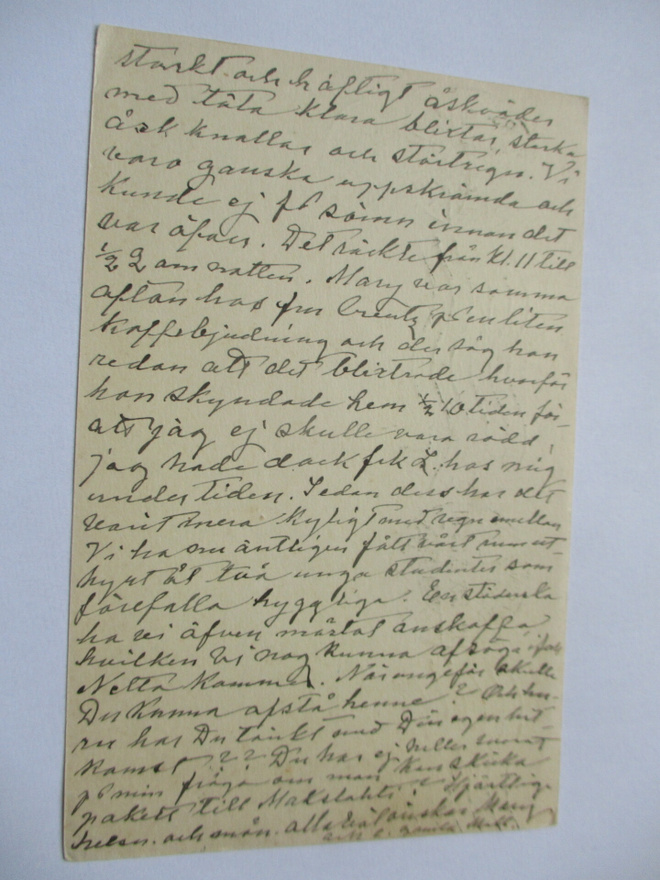 starkt och häftigt åskväder
med täta klara blixtar, starka
åsk knallar och störtregn. Vi
voro ganska uppskrämda och
kunde ej få sömn innan det
var öfver. Det räckte från kl. 11 till
½ 2 om natten. Mary var samma
afton hos fru Creutz på en liten
kaffebjudning och der såg hon
redan att det blixtrade hvarför
hon skyndade hem ½ 10 tiden för
att jag ej skulle vara rädd,
jag hade dock frk L. hos mig
under tiden. Sedan dess har det
varit mera kyligt med regn emellan
Vi ha nu äntligen fått vårt rum ut-
hyrt åt två unga studenter som
förefalla hyggliga. En städerska
ha vi äfven måstat anskaffa,
hvilken vi nog kunna afsäga ifall
Netta kommer. När ungefär skulle
Du kunna afstå henne? Och hu-
ru har Du tänkt med Din egen hit-
komst?? Du har ej heller svarat
på min fråga om man kan skicka
paket till Makslahti. Hjärtliga
helsn. och mån. alla välönskar Mary
och t. gamla